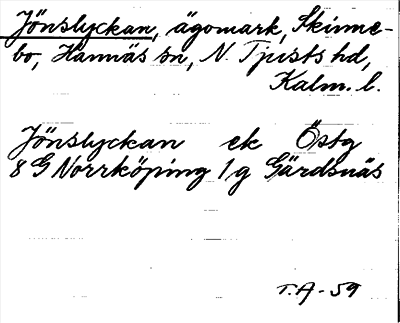 Jönslyckan, ägomark, Skinne-
bo, Hannäs sn, N. Tjusts hd,
Kalm. l.
Jönslyckan ek Östg
8 G Norrköping 1g Gärdsnäs
T.A-59